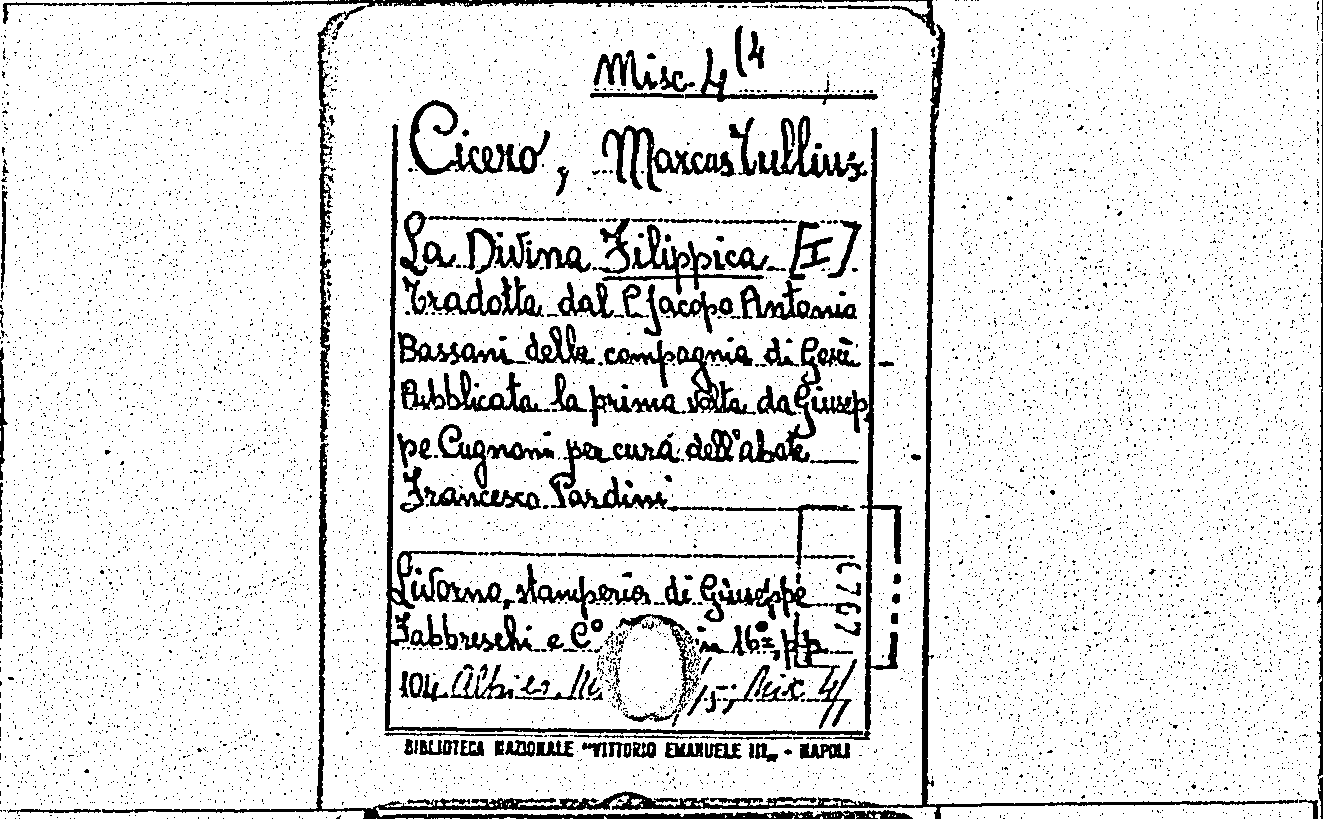 Misc. 4 (4
Cicero, Marcus Tullius
La Divina Filippica [I]
Tradotta dal P. Jacopo Antonio
Bassani della compagnia di Gesù -
Pubblicata la prima volta da Giusep
pe Cugnoni per cura dell'abate
Francesco Pardini
Livorno, stamperia di Giuseppe
Fabbreschi e C° in 16°, pp.
104
Misc 4/
BIBLIOTECA NAZIONALE "VITTORIO EMANUELE III„ - NAPOLI